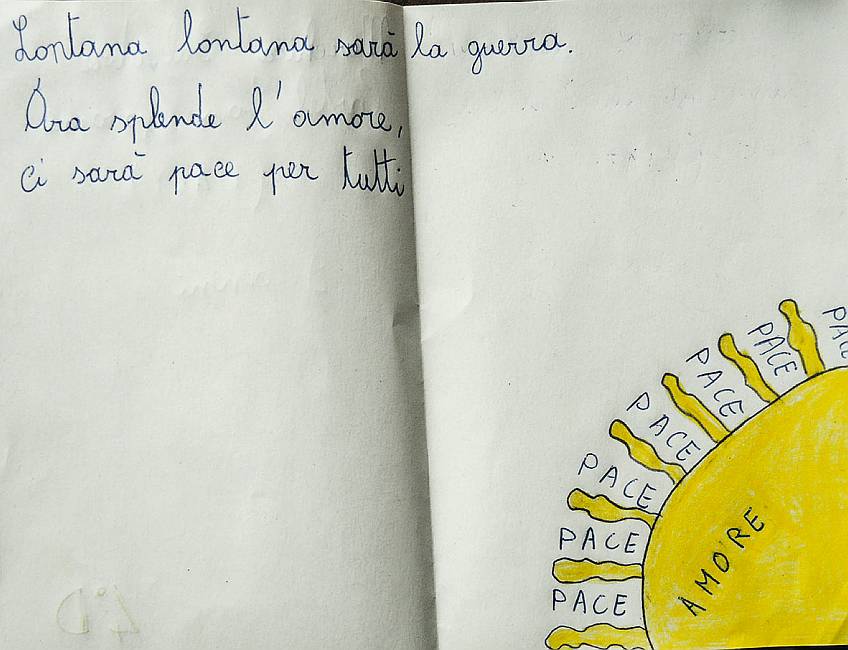 Lontana lontana sarà la guerra.
Ora splende l'amore,
ci sarà pace per tutti
PACE
PACE
PACE
PACE
PACE
PACE
PACE
AMORE
4°D